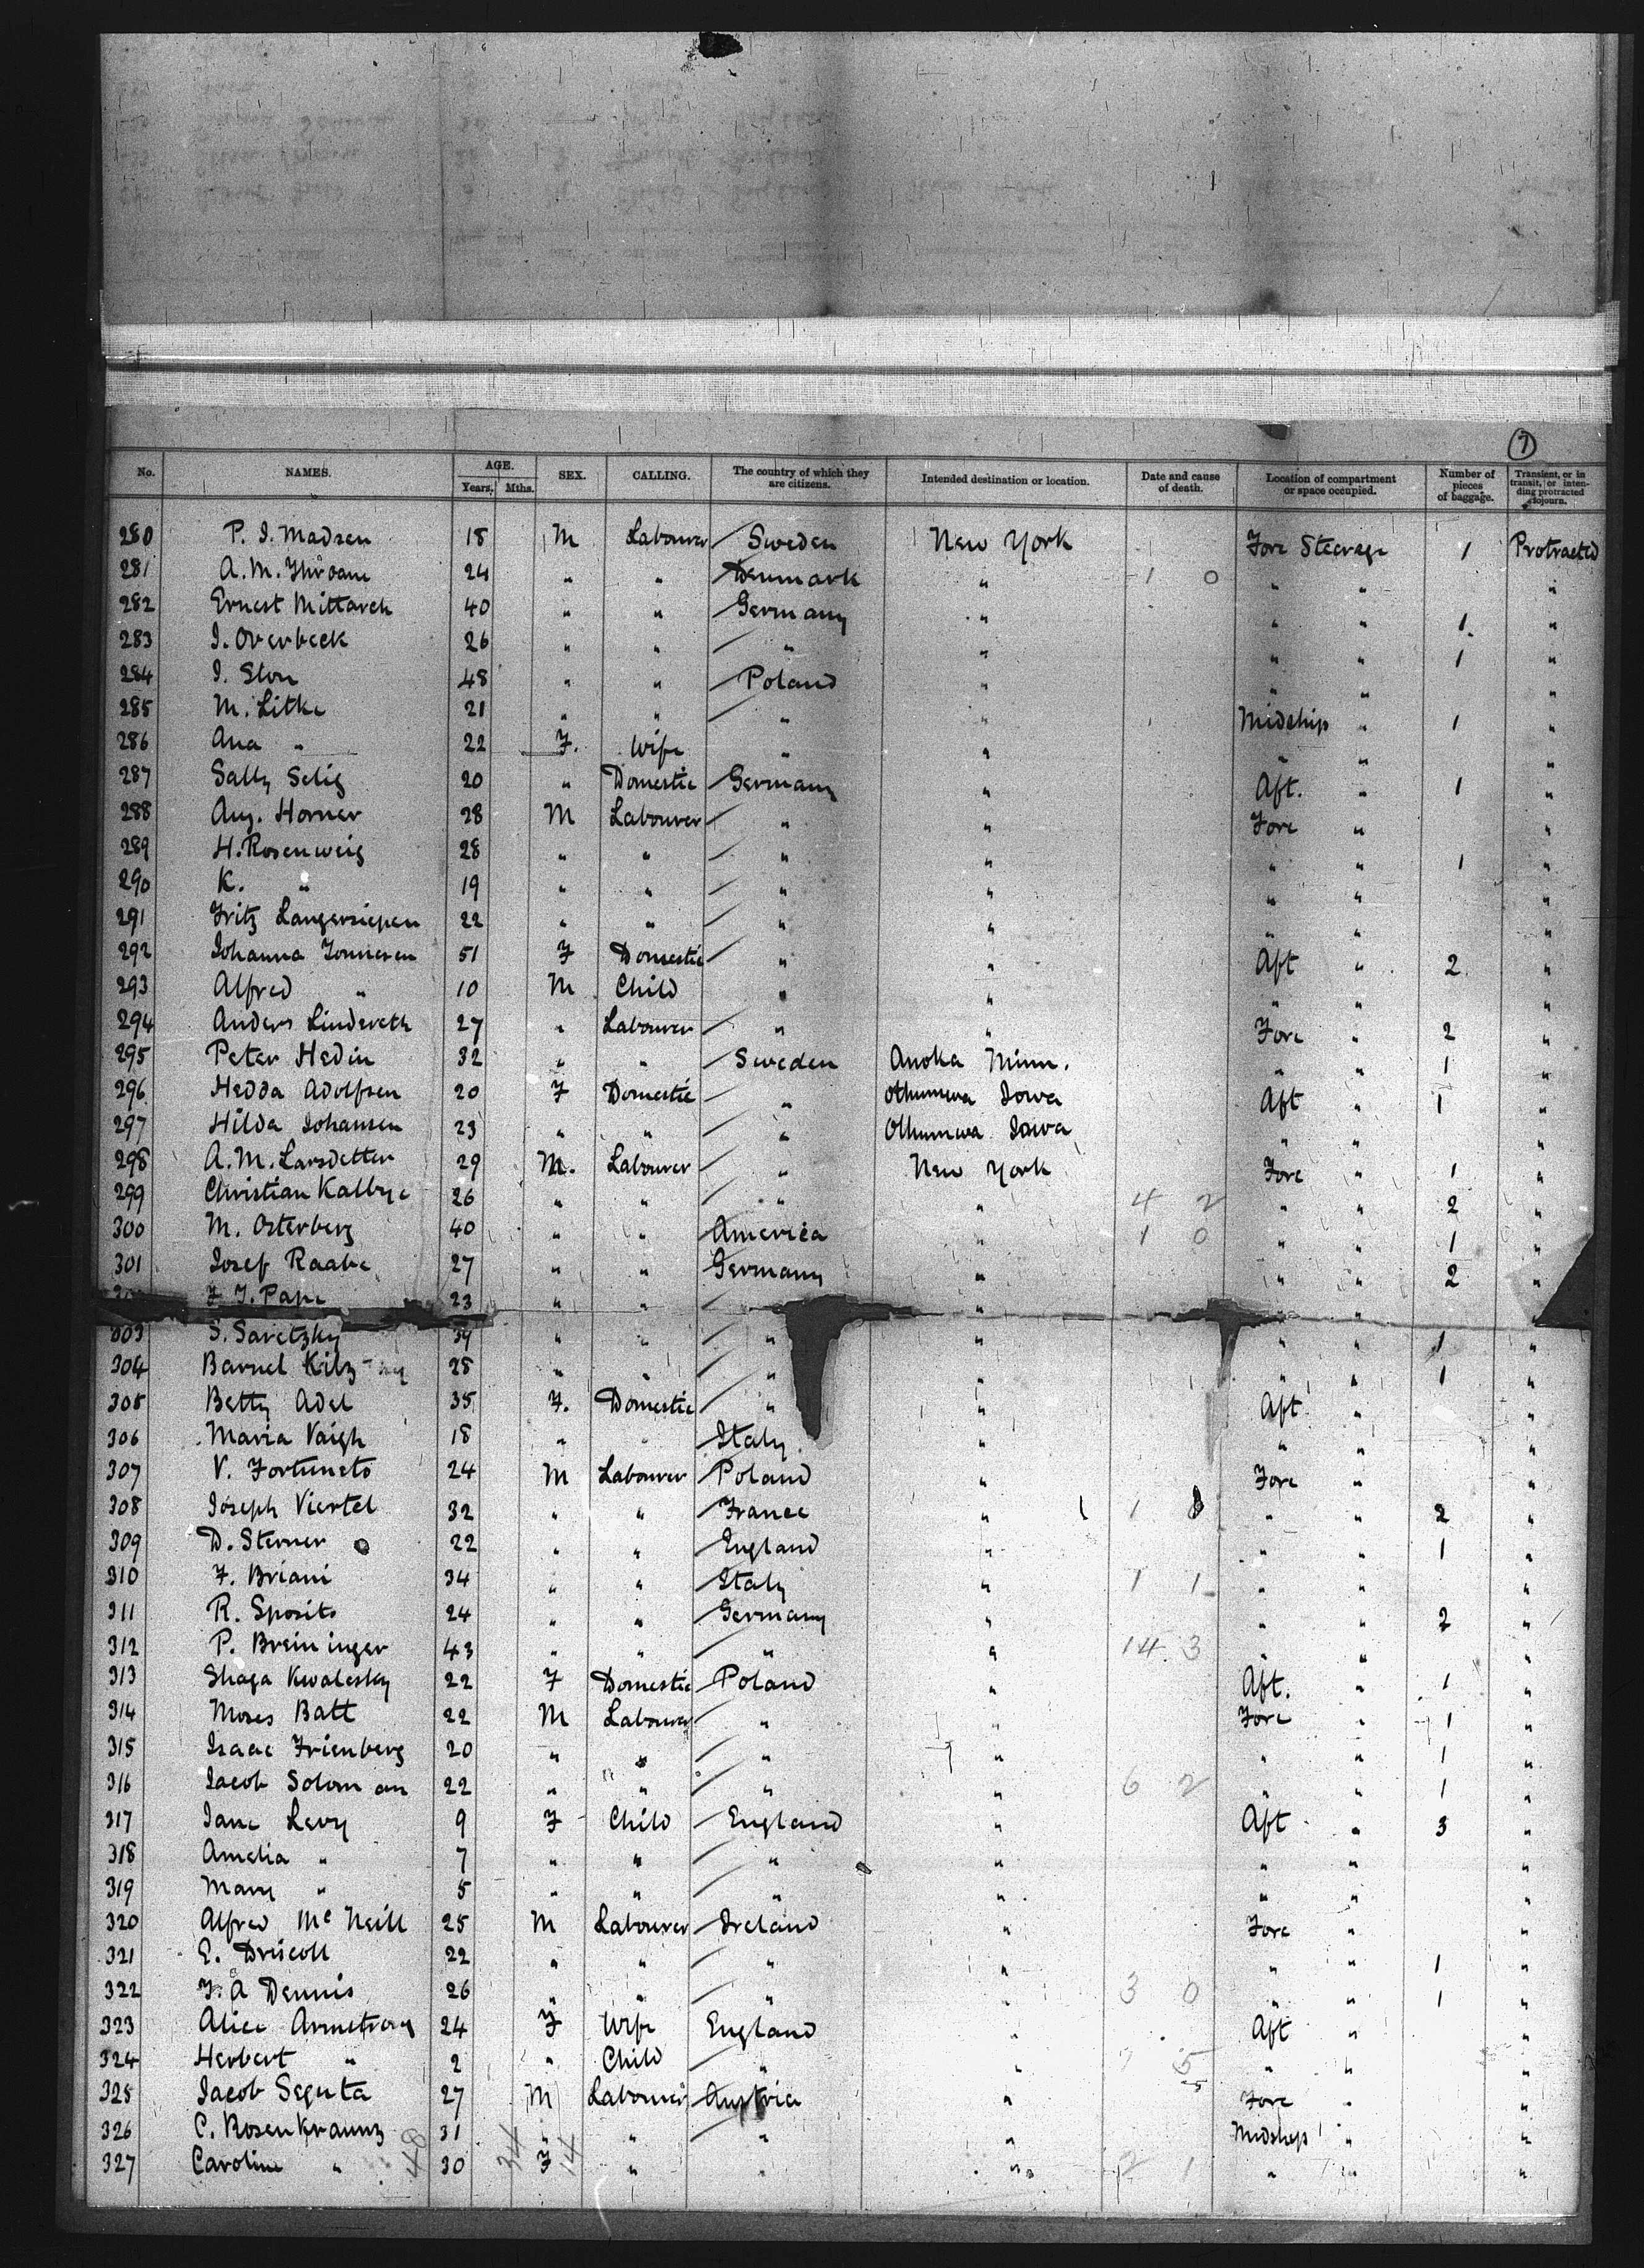 7
No. NAMES. AGE. Years. Mths. SEX. CALLING. The country of which they are citizens. Intended destination or location. Date and cause of death. Location of compartment or space occupied. Number of pieces of baggage. Transient, or in transit, or intending protracted sojourn.
280 P. I. Madsen 18 M Labourer Sweden New York Fore Steerage 1 Protracted
281 A. M. 24 " " Denmark " 1 0 " " "
282 Ernest Mittarch 40 " " Germany " " " 1 "
283 I. Overbeck 26 " " " " " " 1 "
284 I. Ston 48 " " Poland " " " "
285 M. Litke 21 " " " " Midship " 1 "
286 Ana " 22 F. Wife " " " " "
287 Sally Selig 20 " Domestic Germany " Aft. " 1 "
288 Aug. Horner 28 M Labourer " " Fore " "
289 H. Rosenweig 28 " " " " " " 1 "
290 K. " 19 " " " " " " "
291 Fritz Langersiepen 22 " " " " " " "
292 Johanna 51 F Domestic " " Aft " 2 "
293 Alfred " 10 M Child " " " " "
294 Anders Lindereth 27 " Labourer " " Fore " 2 "
295 Peter Hedin 32 " " Sweden Anoka Minn. " " 1 "
296 Hedda Adolfsen 20 F Domestic " Othumwa Iowa Aft " 1 "
297 Hilda Johansen 23 " " " Othumwa Iowa " " "
298 A. M. Larsdetter 29 M. Labourer " New York Fore " 1 "
299 Christian Kalbye 26 " " " " 4 2 " " 2 "
300 M. Osterberg 40 " " America " 1 0 " " 1 "
301 Josef Raabe 27 " " Germany " " " 2 "
F. J. Pape 23 " " " " " "
303 S. Saretzky 39 " " " " " " 1 "
304 Barnel 28 " " " " " " 1 "
305 Betty Adel 35 F. Domestic " " Aft " "
306 Maria Vaigh 18 " " Italy " " " "
307 V. Fortuneto 24 M Labourer Poland " Fore " "
308 Joseph Viertel 32 " " France " 1 " " 2 "
309 D. Sterner 22 " " England " " " 1 "
310 F. Briani 34 " " Italy " 1 1 " " "
311 R. Sposito 24 " " Germany " " " 2 "
312 P. Breininger 43 " " " " 14 3 " " "
313 Shaga Kwalesky 22 F Domestic Poland " Aft. " 1 "
314 Moses Batt 22 M Labourer " " Fore " 1 "
315 Isaac Frienberg 20 " " " " " " 1 "
316 Jacob Soloman 22 " " " " 6 2 " " 1 "
317 Jane Levy 9 F Child England " Aft " 3 "
318 Amelia " 7 " " " " " " "
319 Mary " 5 " " " " " " "
320 Alfred McNeill 25 M Labourer Ireland " Fore " "
321 E. Driscoll 22 " " " " " " 1 "
322 F. A Dennis 26 " " " " 3 0 " " 1 "
323 Alice Armstrong 24 F Wife England " Aft " "
324 Herbert " 2 " Child " " 5 " " "
325 Jacob Seguta 27 M Labourer Austria " Fore " "
326 C. Rosenkraunz 31 " " " " Midship " "
327 Caroline " 30 F " " " 2 1 " " "
48 34 14